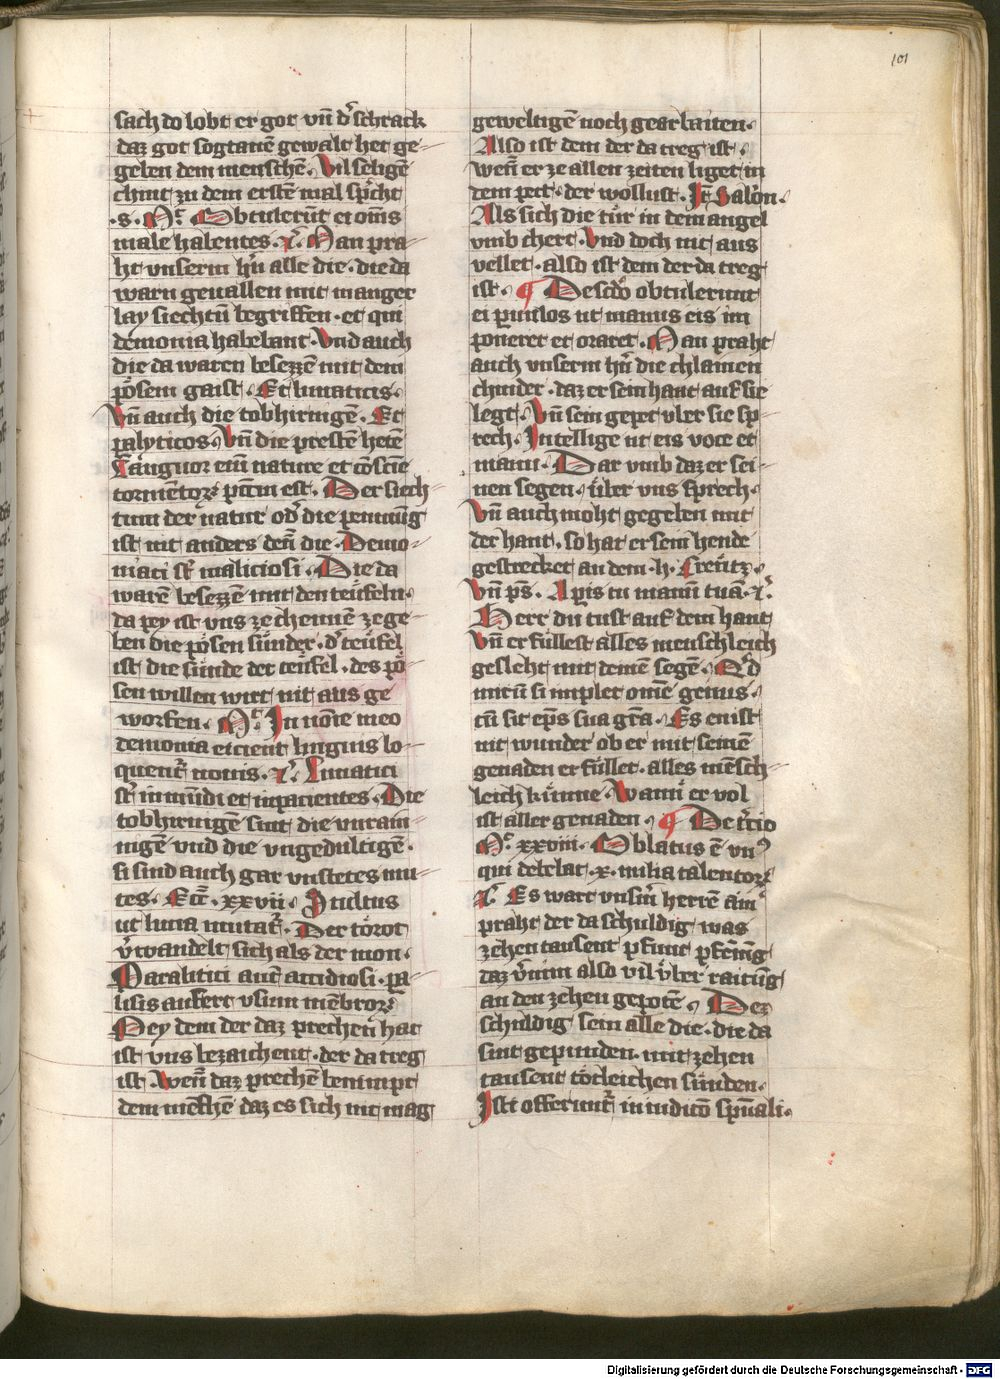 101
sach do lobt er got vn̄ d᷎ schrack
daz got sogtanē gewalt het ge-
geben dem menschē. Vil seligē
chint zu dem erstē mal sp͛cht
.s. Mͨ. Obtulerūt ei om̄s
male habentes. ⁊c̓. Man pra-
ht vnserm h᷎n alle die. die da
warn geuallen mit manger
lay siechtū begriffen. et qui
demonia habebant. Vnd auch
die da waren besezzē mit dem
pösem gaist. Et lunaticis.
Vn̄ auch die tobhirnigē. Et
palyticos. Vn̄ die prestē hetē
Languor eīn nature et cōscīe
tormētor̃ pctm̄ est. Der siech-
tum der natur od᷎ die peinnūg
ist nit anders deñ die. Demo-
niaci sṫ maliciosi. Die da
warē besezzē mit den teüfeln.
da pey ist vns ze chennē zege-
ben die pösen sünder. d᷎ teüfel
ist die sünde der teüfel. des pö-
sen willen wirt nit aus ge
worfen. Mͨ. In noīe meo
demonia eicient linguis lo-
quent̃ nouis. ⁊c̓. Lunatici
sṫ inmūdi et inpacientes. Die
tobhirnigē sint die vnrain-
nigē vnd die vngedultigē.
si sind auch gar vnstetes mu-
tes. Ecc̄. xxvii. Stultus
ut luna mutat̃. Der törot
v᷎wandelt sich als der mon.
Paralitici autē accidiosi. pa-
lisis aufert vsum mēbror̃
Pey dem der daz prechen̄ hat
ist vns bezaichent. der da treg
ist. Wenn̄ daz prechē benimpt
dem mēschē daz es sich nit mag
geweltigē noch gearbaiten.
Also ist dem der da treg ist.
wenn̄ er ze allen zeiten liget in
dem pett. der wollust. It̄ Salon̄.
Als sich die tür in dem angel
vmb chert. Vnd doch nit aus
vellet. also ist dem der da treg
ist. ¶ De scd̄o obtulerunt
ei pūulos ut manus eis im
poneret et oraret. Man praht
auch vnserm h᷎n die chlainen
chinder. daz er sein hant auf sie
legt. Vn̄ sein gepet vber sie sp-
rech. Intellige ut eis voce et
manu. Dar vmb daz er sei-
nen segen. über vns sprech.
Vn̄ auch moht gegeben mit
der hant. so hat er sein hende
gestrecket an dem .h. Creütz.
Vn̄ p̄s. Apis tu manū tuā. ⁊c̓.
Herr du tust auf dein hant
Vn̄ er füllest alles menschleich
gesleht mit deinē segē. Qd̄
mirū si implet omē genus.
cū sit ep̄s sua gr̄a. Es enist
nit wunder ob er mit seinē
genaden er füllet. alles mēsch-
leich künne. Wann̄ er vol
ist aller genaden. ¶ De t᷎cio
Mͨ. xxviii. Oblatus ē vn᷒
qui debebat .x. milia talentor̃
⁊c̓. Es wart vnsm̄ herrē ain᷎
praht der da schuldig was
zehen tausent pfunt pfēnīg
daz v᷎nim also vil v̈ber raitūg
an den zehen gepotē. Der
schuldig sein alle die. die da
sint gepunden. mit zehen
tausent tötleichen sünden.
Isti offerunt̃ in iudicō sp̄uali.
Digitalisierung gefördert durch die Deutsche Forschungsgemeinschaft - DFG